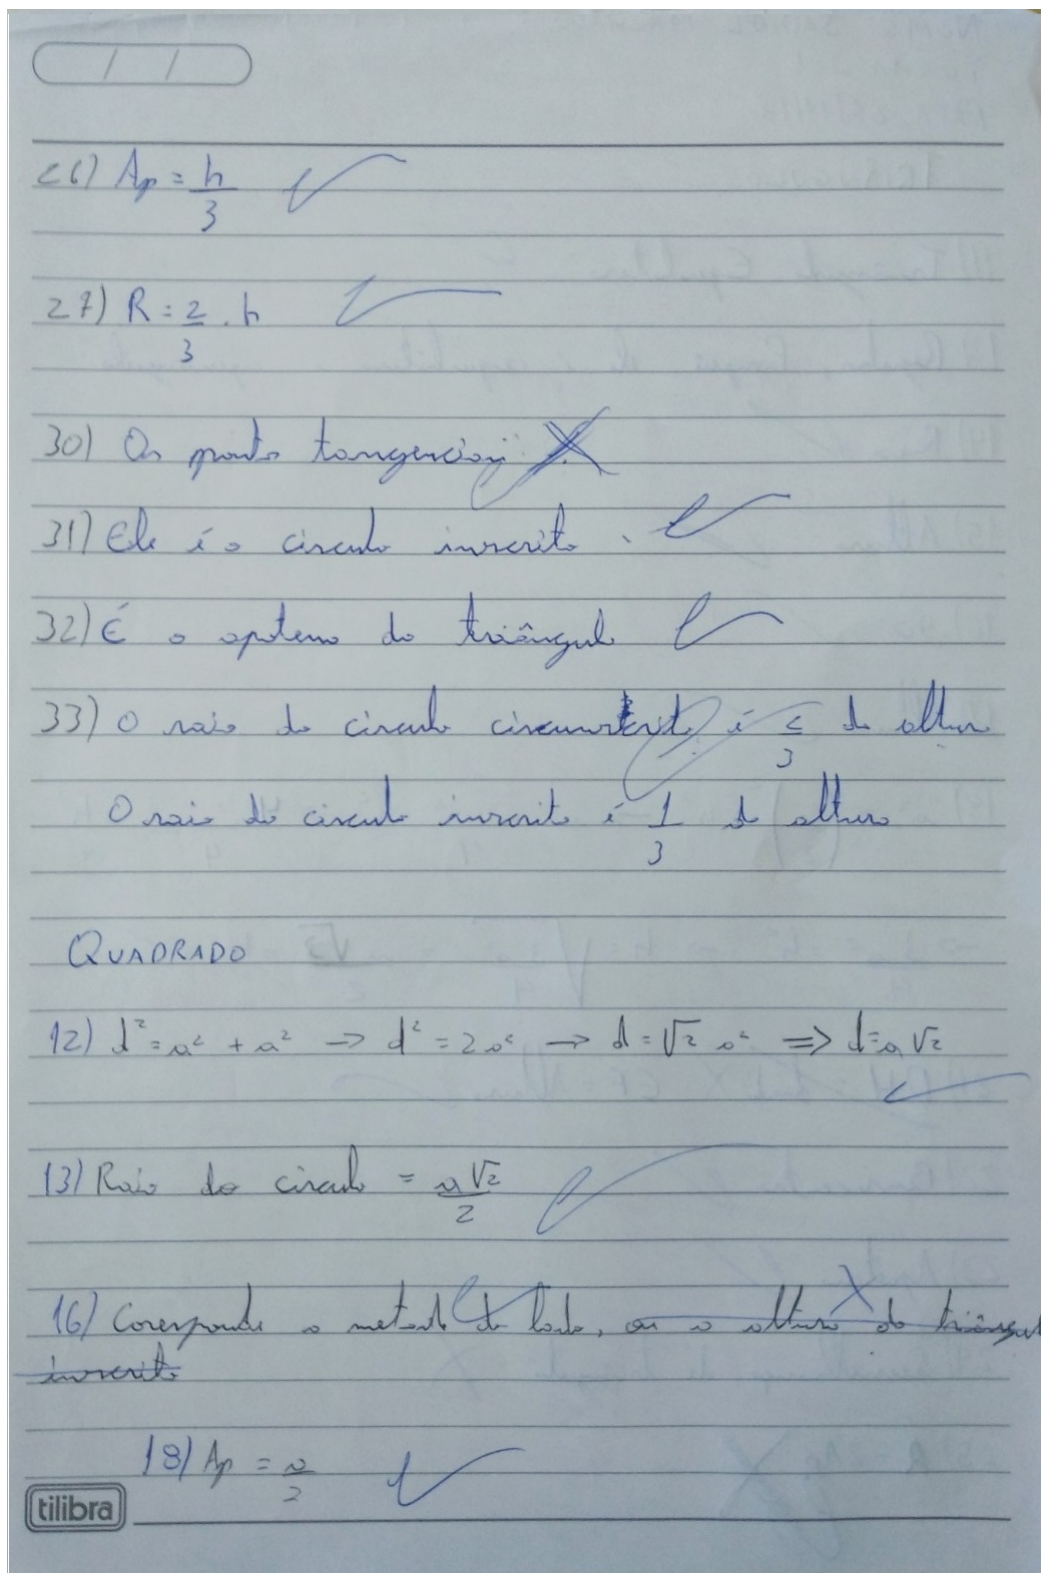 26) Ap = h/3
27) R = 2/3 . h
30) Os ponto
31) Ele é o circulo inscrito.
32) É o apotema do triângulo
33) O raio do circulo circunscrito é 2/3 da altura
O raio do circulo inscrito é 1/3 da altura
QUADRADO
12) d² = a² + a² → d² = 2a² → d = √2 a² ⇒ d = a√2
13) Raio do circulo = a√2/2
16) Coresponde a metade do lado, ou a altura do triângulo
inscrito
18) Ap = a/2
tilibra